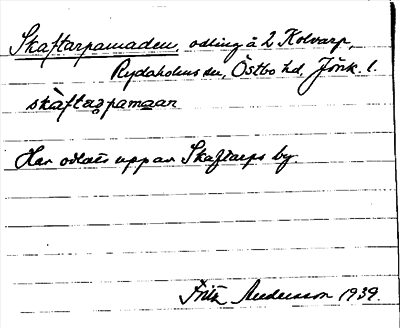 Skaftarpamaden, odling å 2 Kolvarp,
Rydaholms sn, Östbo hd, Jönk. l.
skàftarpamaan
Har odlats upp av Skaftarps by.
Fritz Andersson 1939.